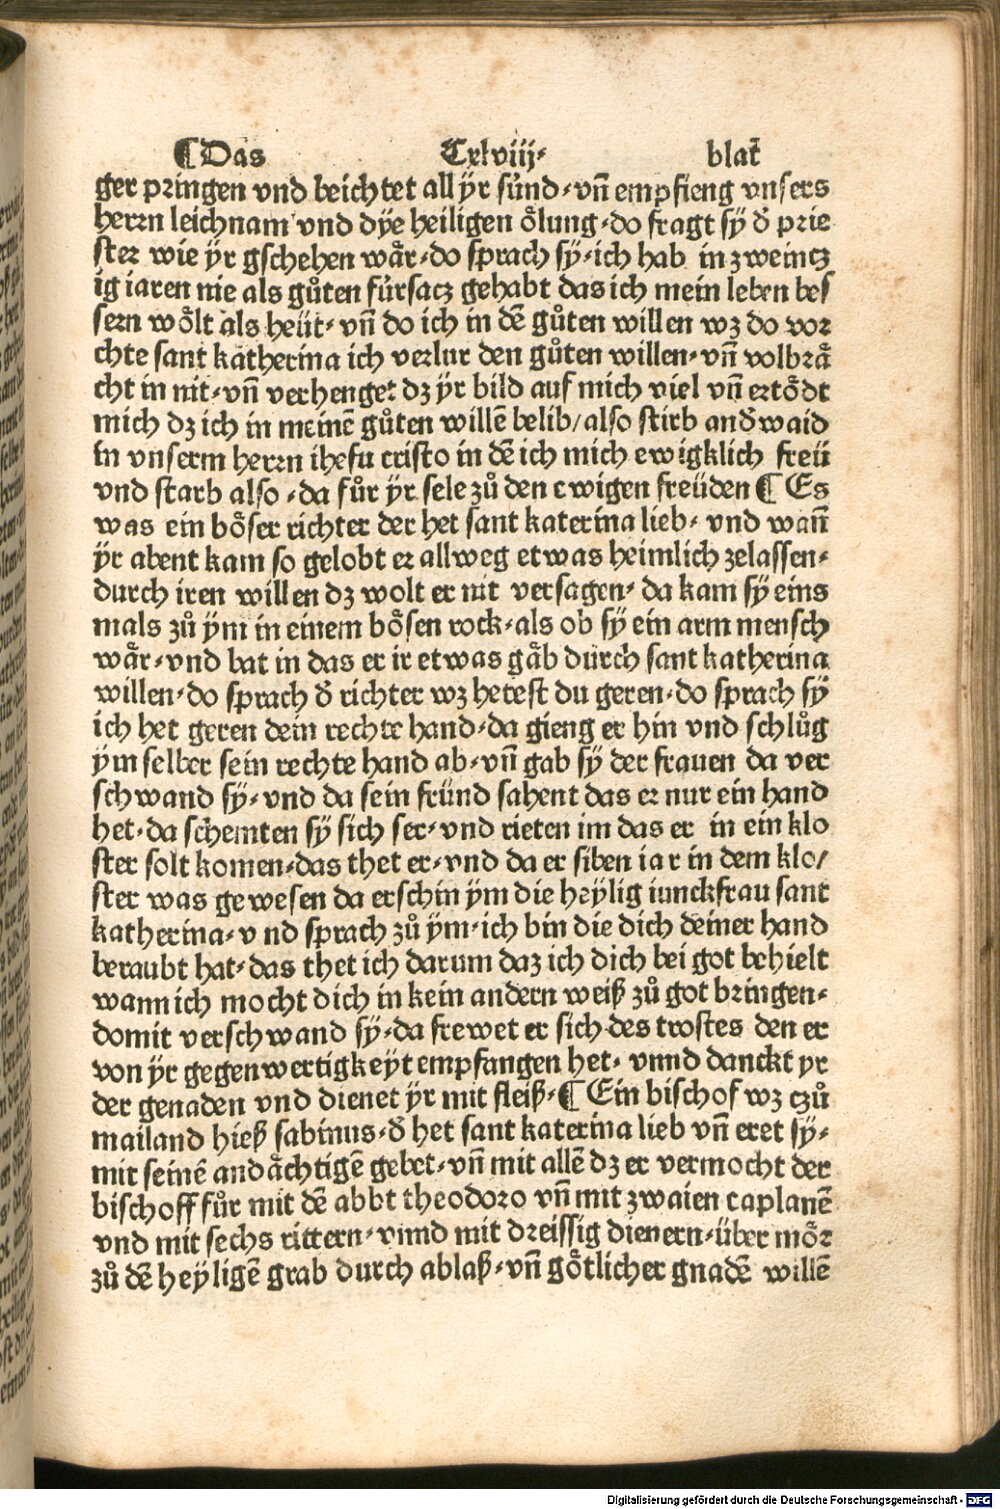 ¶Das Cxlviij· blat̄
ger pringen vnd beichtet all ÿr sünd·vn̄ empfieng vnsers
herrn leichnam vnd dÿe heiligen ȫlung·do fragt sÿ d̄ prie
ster wie ÿr gschehen wår·do sprach sÿ·ich hab in zweintz
ig iaren nie als gůten fürsatz gehabt das ich mein leben bes
sern wȫlt als heüt·vn̄ do ich in dē gůten willen wz do vor
chte sant katherina ich verlur den gůten willen·vn̄ volbrå
cht in nit·vn̄ verhenget dz ÿr bild auf mich viel vn̄ ertȫdt
mich dz ich in meinē gůten willē belib/also stirb and̄waid
in vnserm herrn ihesu cristo in dē ich mich ewigklich freü
vnd starb also·da fůr ÿr sele zů den ewigen freüden ¶ Es
was ein bȫser richter der het sant katerina lieb·vnd wan̄
ÿr abent kam so gelobt er allweg etwas heimlich zelassen·
durch iren willen dz wolt er nit versagen·da kam sÿ eins
mals zů ÿm in einem bȫsen rock·als ob sÿ ein arm mensch
wår·vnd bat in das er ir etwas gåb durch sant katherina
willen·do sprach d̄ richter wz hetest du geren·do sprach sÿ
ich het geren dein rechte hand·da gieng er hin vnd schlůg
ÿm selber sein rechte hand ab·vn̄ gab sÿ der frauen da ver
schwand sÿ·vnd da sein fründ sahent das er nur ein hand
het·da schemten sÿ sich ser·vnd rieten im das er in ein klo
ster solt komen·das thet er·vnd da er siben iar in dem klo/
ster was gewesen da erschin ÿm die heÿlig iunckfrau sant
katherina·vnd sprach zů ÿm·ich bin die dich deiner hand
beraubt hat·das thet ich darum daz ich dich bei got behielt
wann ich mocht dich in kein andern weiß zů got bringen·
domit verschwand sÿ·da frewet er sich des trostes den er
von ÿr gegenwertigkeÿt empfangen het· vnnd danckt yr
der genaden vnd dienet ÿr mit fleiß·¶ Ein bischof wz czů
mailand hieß sabinus·d̄ het sant katerina lieb vn̄ eret sÿ·
mit seinē andåchtigē gebet·vn̄ mit allē dz er vermocht der
bischoff fůr mit dē abbt theodoro vn̄ mit zwaien caplanē
vnd mit sechs rittern·vnnd mit dreissig dienern·über mȫr
zů dē heÿligē grab durch ablaß·vn̄ gȫtlicher gnadē willē
Digitalisierung gefördert durch die Deutsche Forschungsgemeinschaft - DFG